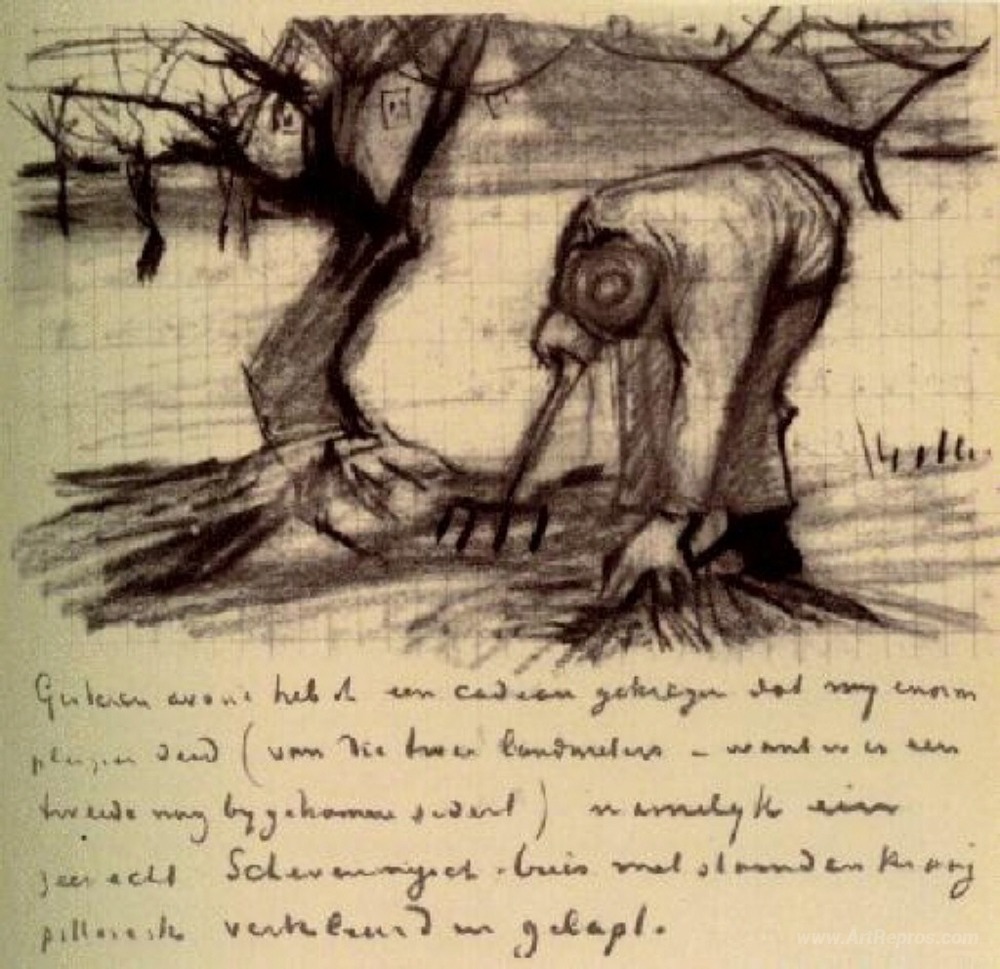 Gisteren avond heb ik een cadeau gekregen dat my enorm
plezier deed (van die twee landmeters – want er is een
tweede nog bygekomen sedert) namelyk een
zeer echt Scheveningsch buis met staanden kraag
pittoresk verkleurd en gelapt.
www.ArtRepros.com